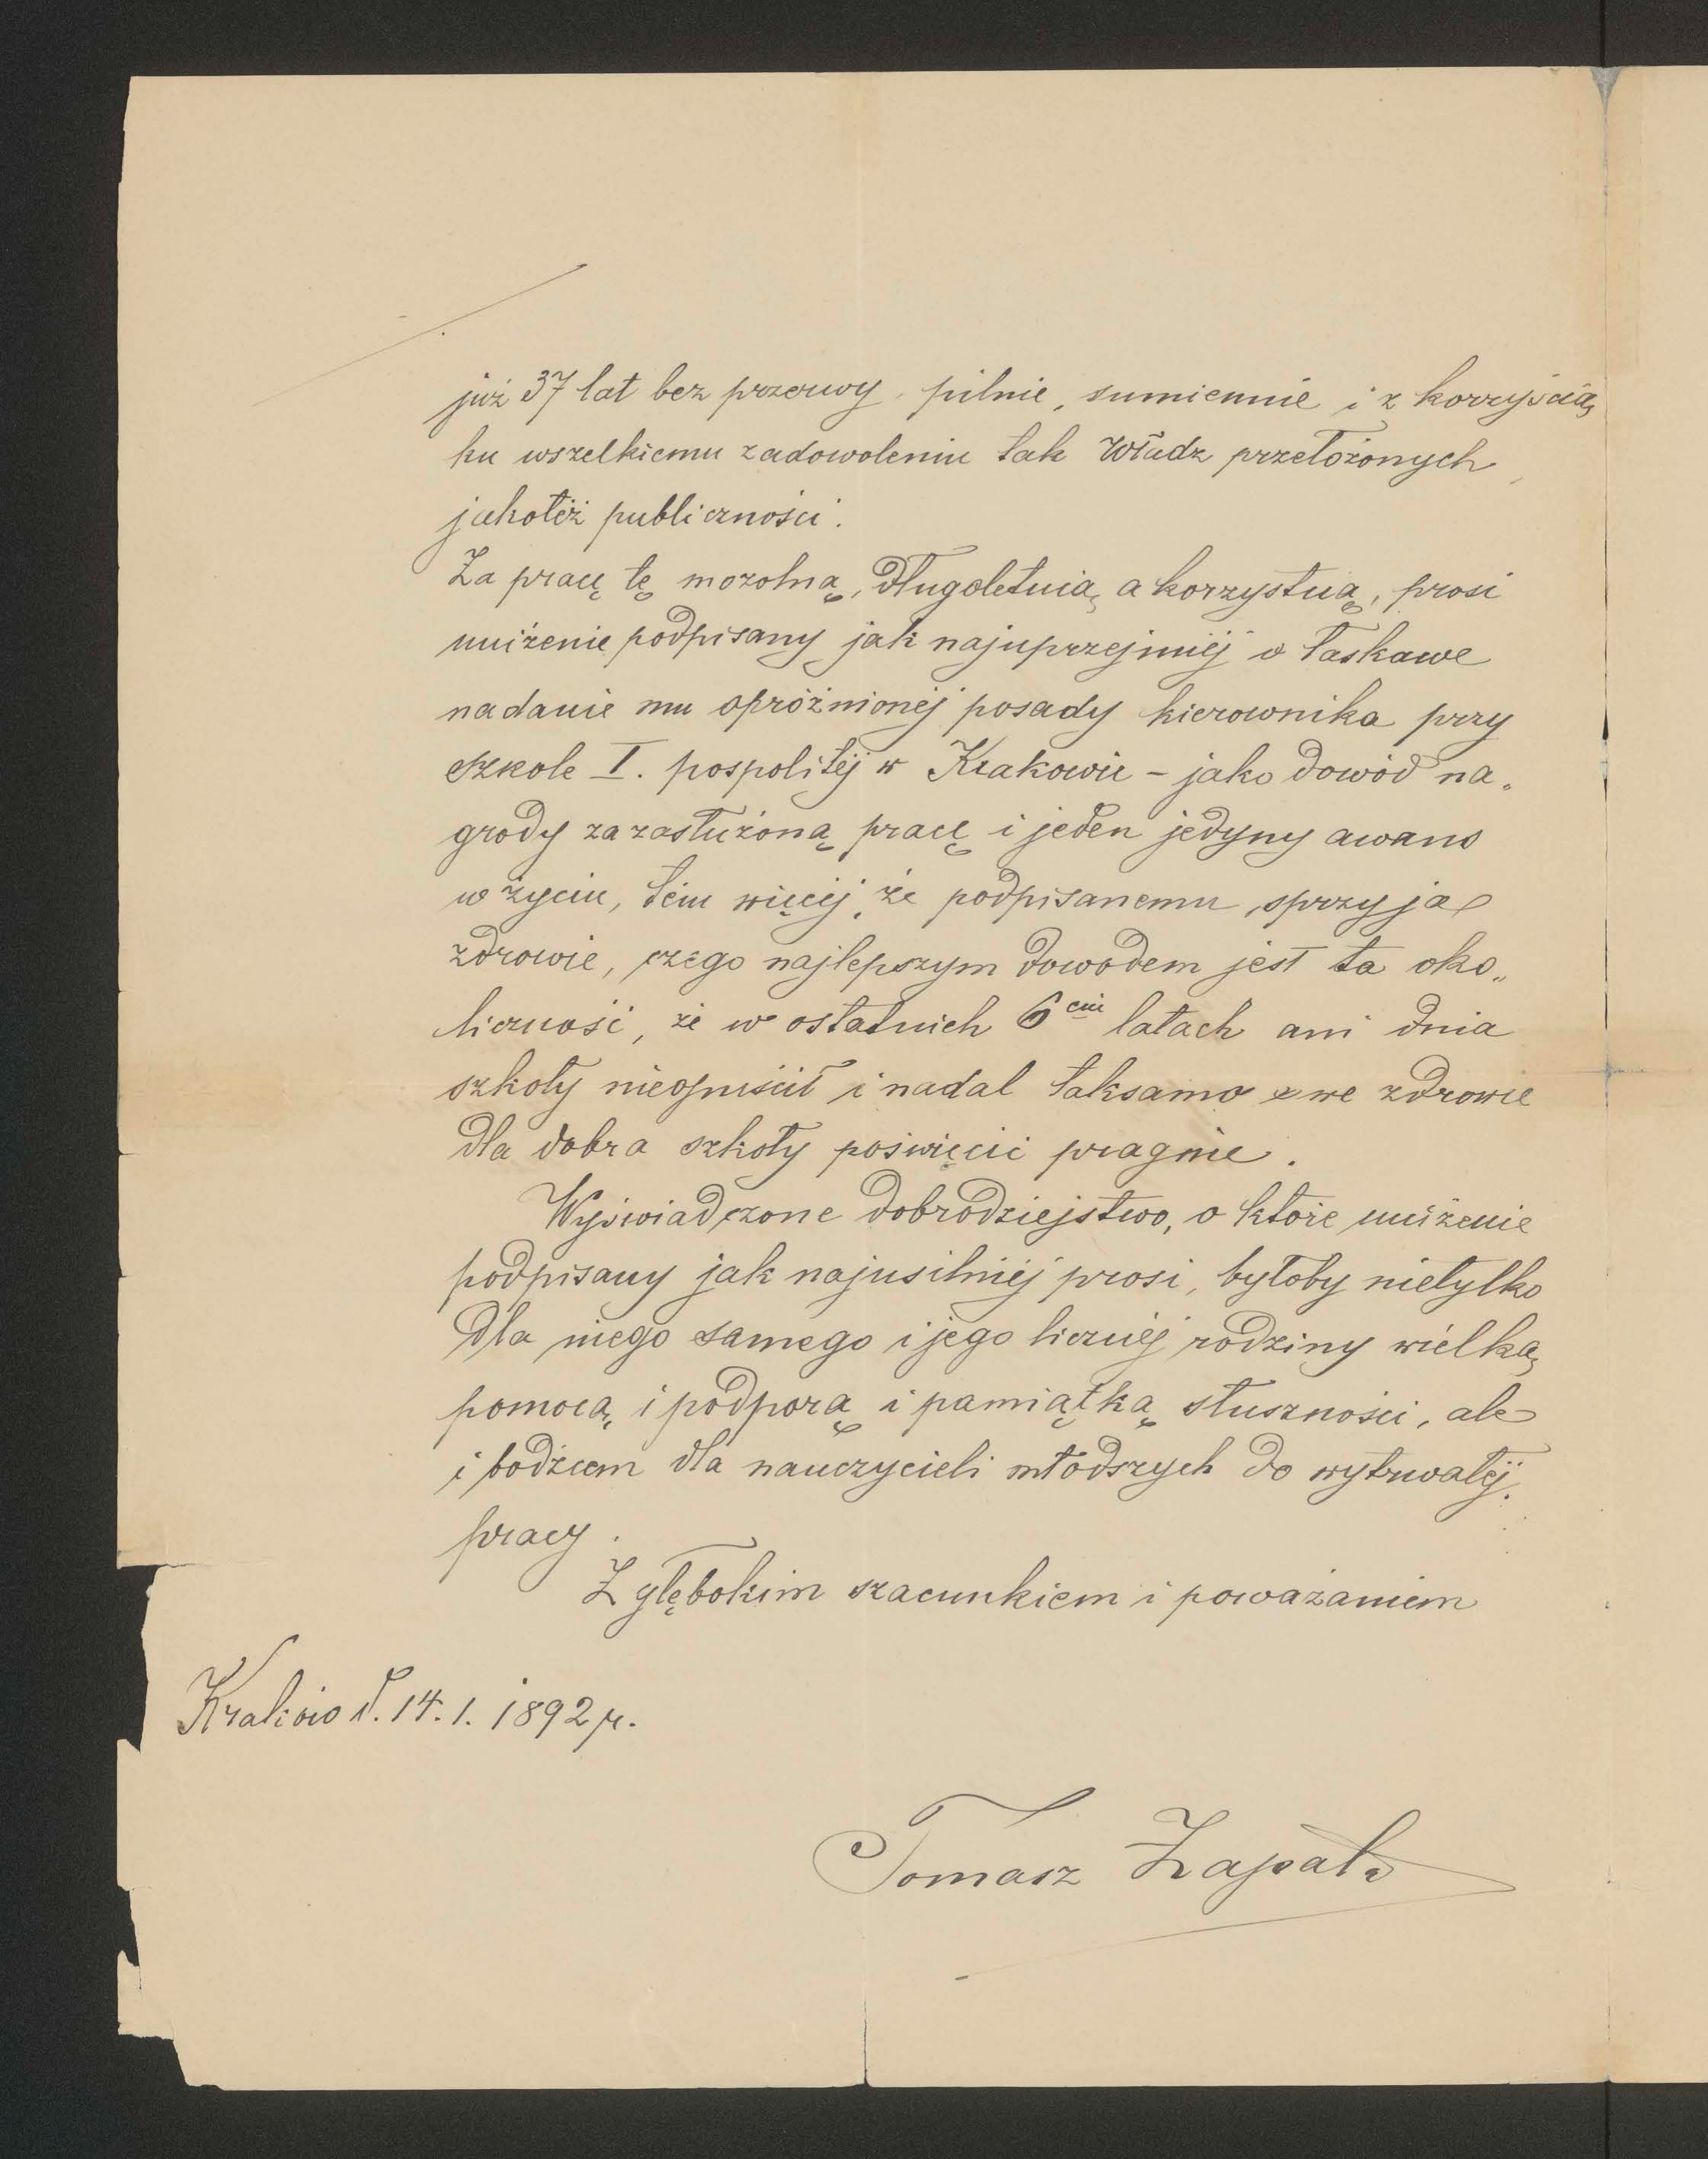 już 37 lat bez przerwy, pilnie, sumiennie i z korzyścią
ku wszelkiemu zadowoleniu tak Władz przełożonych
jakoteż publiczności.
Za pracę tę mozolną, długoletnią, a korzystną, prosi
uniżenie podpisany jak najuprzejmiéj o łaskawe
nadanie mu opróżnionéj posady kierownika przy
szkole I. pospolitéj w Krakowie – jako dowód na„
grody za zasłużoną pracę i jeden jedyny awans
w życiu, tém więcéj, że podpisanemu sprzyja
zdrowie, czego najlepszym dowodem jest ta oko„
liczność, że w ostatnich 6ciu latach ani dnia
szkoły nieopuścił i nadal taksamo swe zdrowie
dla dobra szkoły poświęcić pragnie.
Wyświadczone dobrodziejstwo, o które uniżenie
podpisany jak najusilniéj prosi, byłoby nietylko
dla niego samego i jego licznéj rodziny wielką
pomocą, i podporą i pamiątką słuszności, ale
i bodźcem dla nauczycieli młodszych do wytrwałéj
pracy.
Z głębokim szacunkiem i poważaniem
Kraków d. 14. 1. 1892 r.
Tomasz Zapała